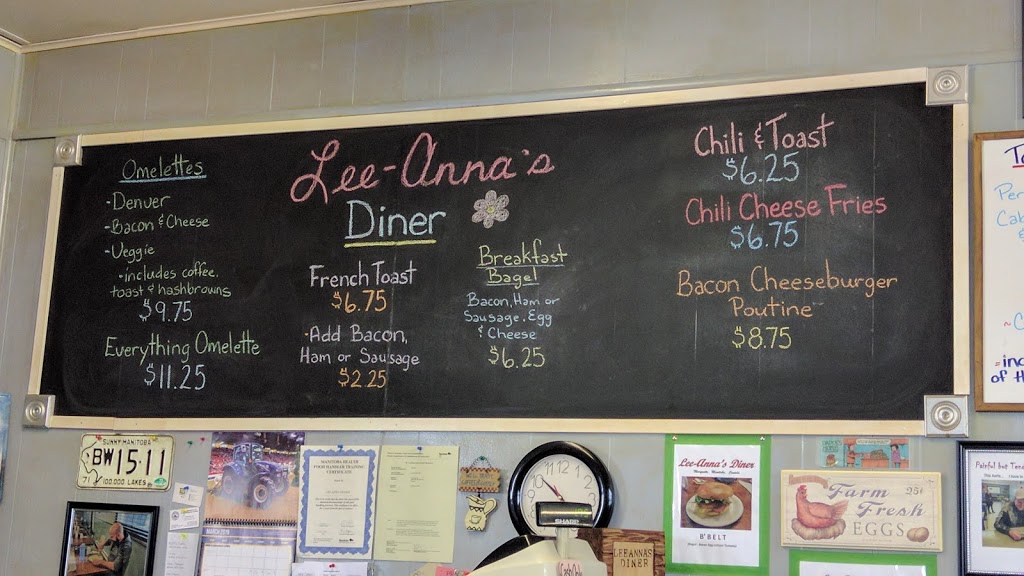 Omelettes
-Denver
-Bacon & Cheese
-Veggie
-includes coffee,
toast & hashbrowns
$9.75
Everything Omelette
$11.25
Lee-Anna's
Diner
French Toast
$6.75
-Add Bacon,
Ham or Sausage
$2.25
Breakfast
Bagel
Bacon, Ham or
Sausage, Egg
& Cheese
$6.25
Chili & Toast
$6.25
Chili Cheese Fries
$6.75
Bacon Cheeseburger
Poutine
$8.75
SUNNY MANITOBA
BW 15·11
71 100,000 LAKES
MANITOBA HEALTH
FOOD HANDLER TRAINING
CERTIFICATE
SHARP
LEEANNA'S
DINER
Lee-Anna's Diner
B'BELT
Farm
Fresh
EGGS
25¢
Painful but